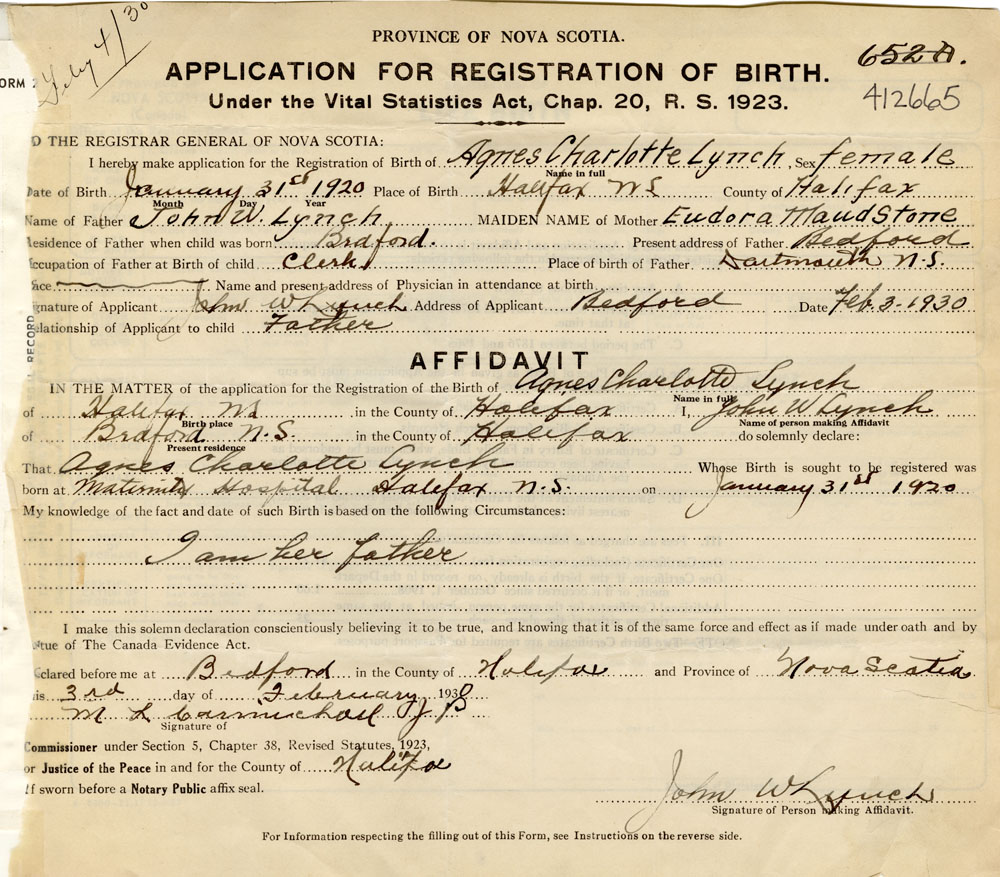 Feby 4/30
PROVINCE OF NOVA SCOTIA.
652A.
ORM 2
APPLICATION FOR REGISTRATION OF BIRTH.
Under the Vital Statistics Act, Chap. 20, R. S. 1923.
412665
O THE REGISTRAR GENERAL OF NOVA SCOTIA:
I hereby make application for the Registration of Birth of Agnes Charlotte Lynch Sex female
Name in full
Date of Birth January 31st 1920 Place of Birth Halifax NS County of Halifax
Month Day Year
Name of Father John W. Lynch MAIDEN NAME of Mother Eudora Maud Stone
Residence of Father when child was born Bedford. Present address of Father Bedford
Occupation of Father at Birth of child Clerk Place of birth of Father Dartmouth N.S.
ace Name and present address of Physician in attendance at birth
ignature of Applicant John W Lynch Address of Applicant Bedford Date Feb 3-1930
elationship of Applicant to child Father
RECORD
AFFIDAVIT
IN THE MATTER of the application for the Registration of the Birth of Agnes Charlotte Lynch
Name in full
of Halifax NS in the County of Halifax I, John W Lynch
Birth place Name of person making Affidavit
of Bedford N.S. in the County of Halifax do solemnly declare:
Present residence
That Agnes Charlotte Lynch Whose Birth is sought to be registered was
born at Maternity Hospital Halifax N.S. on January 31st 1920
My knowledge of the fact and date of such Birth is based on the following Circumstances:
I am her father
I make this solemn declaration conscientiously believing it to be true, and knowing that it is of the same force and effect as if made under oath and by
tue of The Canada Evidence Act.
clared before me at Bedford in the County of Halifax and Province of Nova Scotia
is 3rd day of February 1930
M L Carmichael J P
Signature of
Commissioner under Section 5, Chapter 38, Revised Statutes, 1923,
or Justice of the Peace in and for the County of Halifax
If sworn before a Notary Public affix seal.
John W Lynch
Signature of Person making Affidavit.
For Information respecting the filling out of this Form, see Instructions on the reverse side.